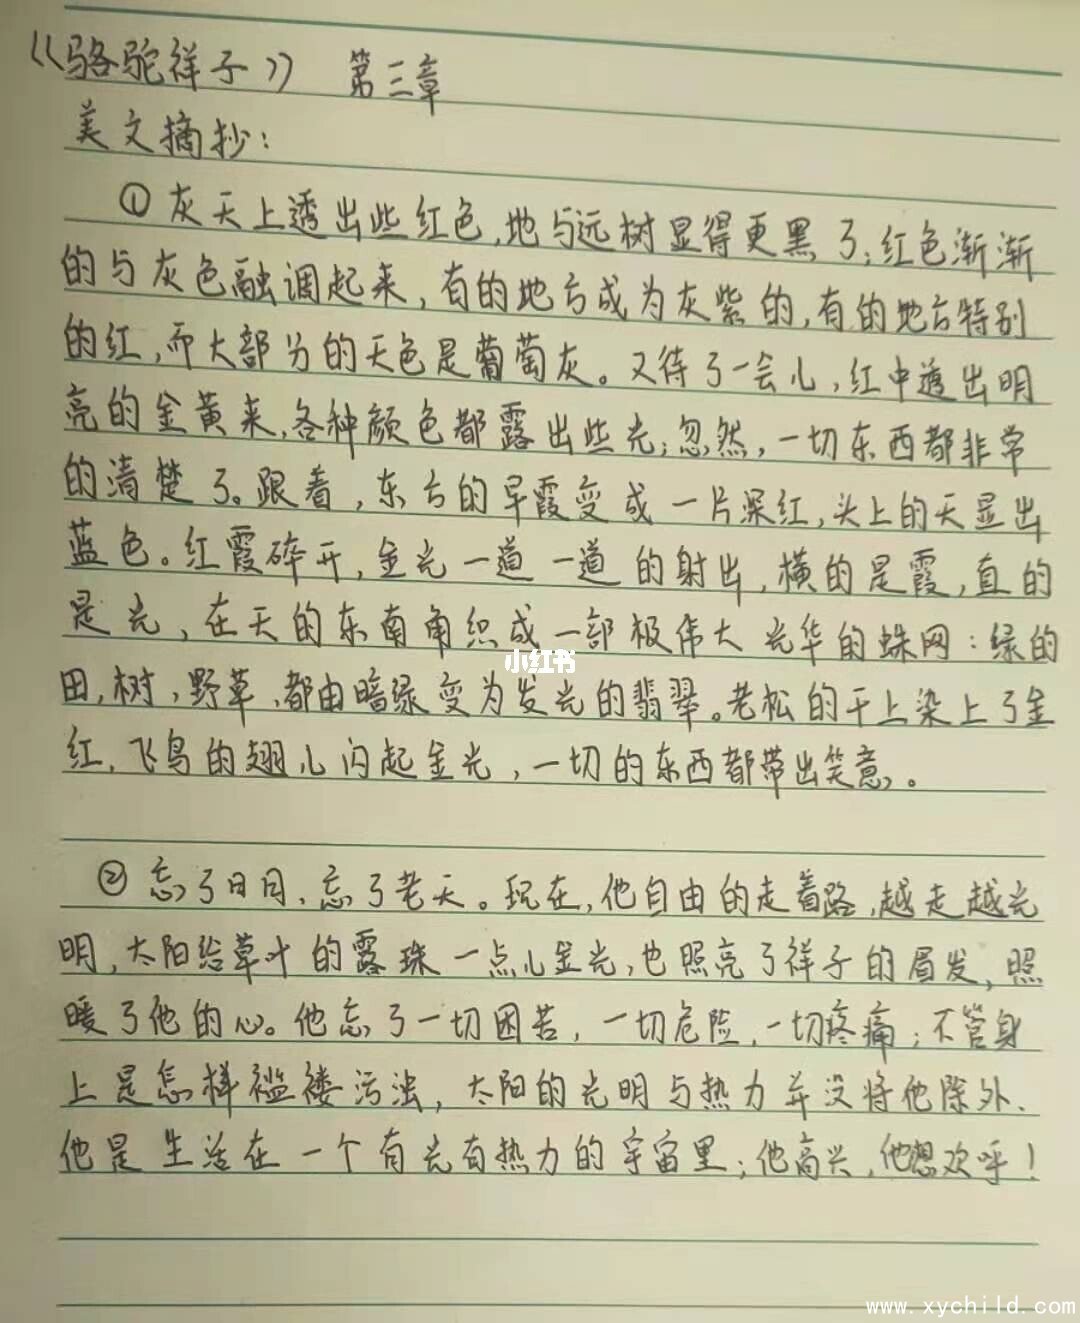 《骆驼祥子》 第三章
美文摘抄：
①灰天上透出些红色，地与远树显得更黑了；红色渐渐
的与灰色融调起来，有的地方成为灰紫的，有的地方特别
的红，而大部分的天色是葡萄灰。又待了一会儿，红中透出明
亮的金黄来，各种颜色都露出些光；忽然，一切东西都非常
的清楚了。跟着，东方的早霞变成一片深红，头上的天显出
蓝色。红霞碎开，金光一道一道的射出，横的是霞，直的
是光，在天的东南角织成一部极伟大光华的蛛网：绿的
小红书
田，树，野草，都由暗绿变为发光的翡翠。老松的干上染上了金
红，飞鸟的翅儿闪起金光，一切的东西都带出笑意。
②忘了日月，忘了老天。现在，他自由的走着路，越走越光
明，太阳给草叶的露珠一点儿金光，也照亮了祥子的眉发，照
暖了他的心。他忘了一切困苦，一切危险，一切疼痛；不管身
上是怎样褴褛污浊，太阳的光明与热力并没将他除外，
他是生活在一个有光有热力的宇宙里；他高兴，他想欢呼！
www.xychild.com